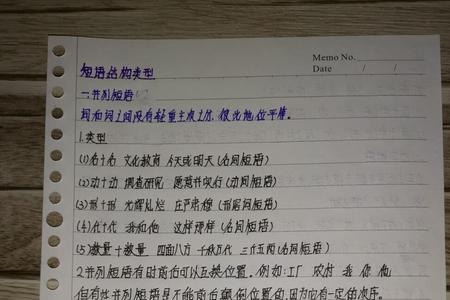 Memo No.
短语结构类型
Date / /
一.并列短语
词和词之间没有轻重主次之分,彼此地位平等。
1.类型
(1)名+名 文化教育 今天或明天(名词短语)
(2)动+动 调查研究 愿意并实行(动词短语)
(3)形+形 光辉灿烂 庄严肃穆(形容词短语)
(4)代+代 我和他 这样那样(名词短语)
(5)数量+数量 四面八方 千秋万代 三斤五两(名词短语)
2.并列短语有时前后可以互换位置.例如:工厂 农村 我 你 他
但有些并列短语是不能前后颠倒位置的,因为它有一定的次序。